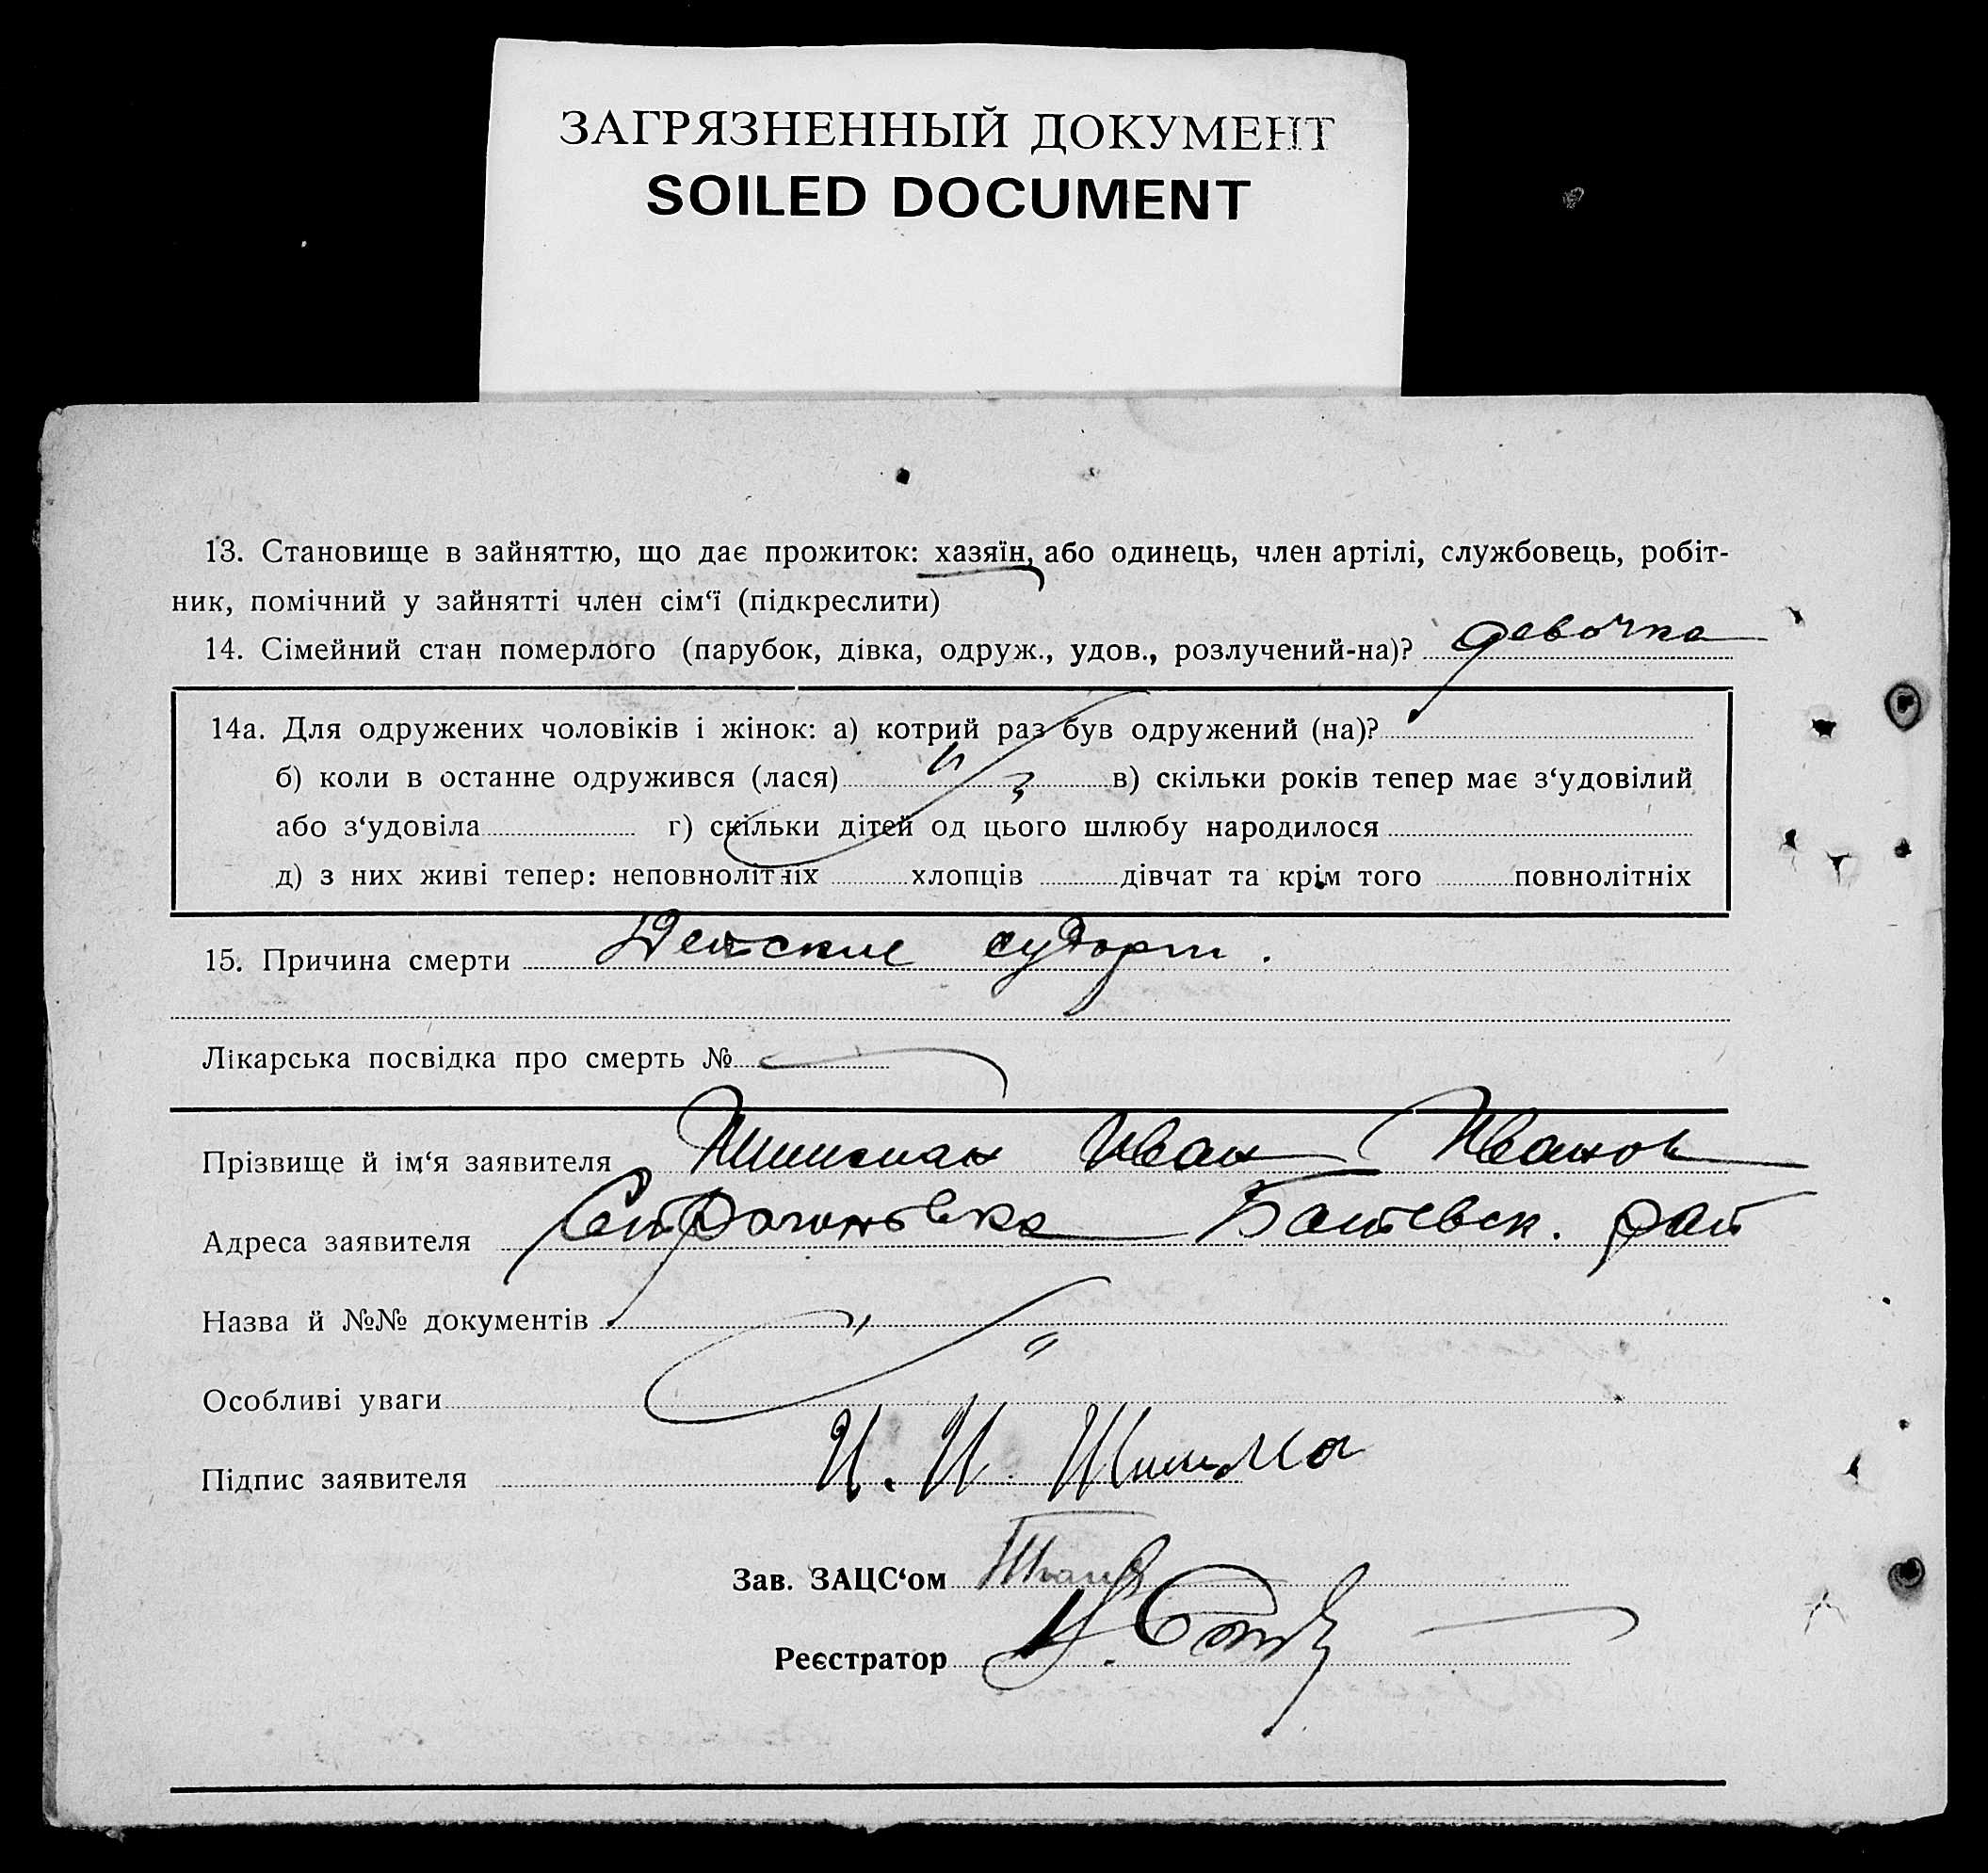 ЗАГРЯЗНЕННЫЙ ДОКУМЕНТ
SOILED DOCUMENT
13. Становище в зайняттю, що дає прожиток: хазяїн, або одинець, член артілі, службовець, робіт-
ник, помічний у зайнятті член сім‘ї (підкреслити)
14. Сімейний стан померлого (парубок, дівка, одруж., удов., розлучений-на)? девочка
14а. Для одружених чоловіків і жінок: а) котрий раз був одружений (на)?
б) коли в останне одружився (лася) в) скільки років тепер має з‘удовілий
або з‘удовіла г) скільки дітей од цього шлюбу народилося
д) з них живі тепер: неповнолітніх хлопців дівчат та крім того повнолітніх
15. Причина смерти Детские судорги.
Лікарська посвідка про смерть №
Прізвище й ім‘я заявителя Иван Иванов
Адреса заявителя рай
Назва й №№ документів
Особливі уваги
Підпис заявителя И. И.
Зав. ЗАЦС‘ом
Реєстратор